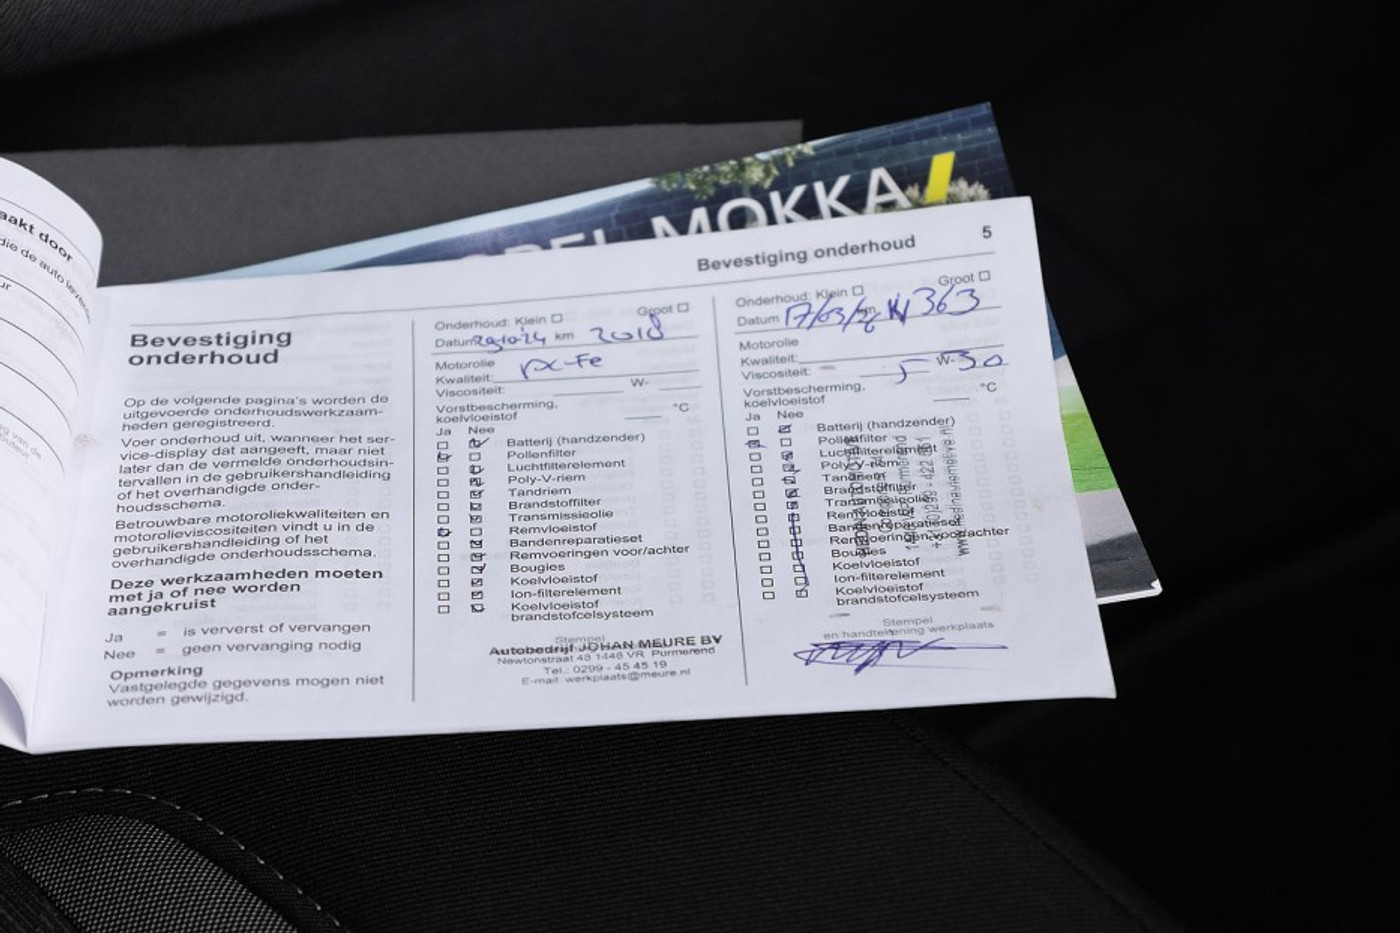 aakt door
OPEL MOKKA
Bevestiging onderhoud
5
Bevestiging
onderhoud
Op de volgende pagina's worden de
uitgevoerde onderhoudswerkzaam-
heden geregistreerd.
Voer onderhoud uit, wanneer het ser-
vice-display dat aangeeft, maar niet
later dan de vermelde onderhoudsin-
tervallen in de gebruikershandleiding
of het overhandigde onder-
houdsschema.
Betrouwbare motoroliekwaliteiten en
motorolieviscositeiten vindt u in de
gebruikershandleiding of het
overhandigde onderhoudsschema.
Deze werkzaamheden moeten
met ja of nee worden
aangekruist
Ja = is ververst of vervangen
Nee = geen vervanging nodig
Opmerking
Vastgelegde gegevens mogen niet
worden gewijzigd.
Onderhoud: Klein Groot
Datum km 2018
Motorolie
Kwaliteit:
Viscositeit: W-
Vorstbescherming,
koelvloeistof °C
Ja Nee
Batterij (handzender)
Pollenfilter
Luchtfilterelement
Poly-V-riem
Tandriem
Brandstoffilter
Transmissieolie
Remvloeistof
Bandenreparatieset
Remvoeringen voor/achter
Bougies
Koelvloeistof
Ion-filterelement
Koelvloeistof
brandstofcelsysteem
Stempel
Autobedrijf JOHAN MEURE BV
Newtonstraat 48 1446 VR Purmerend
Tel.: 0299 - 45 45 19
E-mail: werkplaats@meure.nl
Onderhoud: Klein Groot
Datum 17/03/ km 363
Motorolie
Kwaliteit:
Viscositeit: 5 W-30
Vorstbescherming,
koelvloeistof °C
Ja Nee
Batterij (handzender)
Pollenfilter
Luchtfilterelement
Poly-V-riem
Tandriem
Brandstoffilter
Transmissieolie
Remvloeistof
Bandenreparatieset
Remvoeringen voor/achter
Bougies
Koelvloeistof
Ion-filterelement
Koelvloeistof
brandstofcelsysteem
Stempel
en handtekening werkplaats